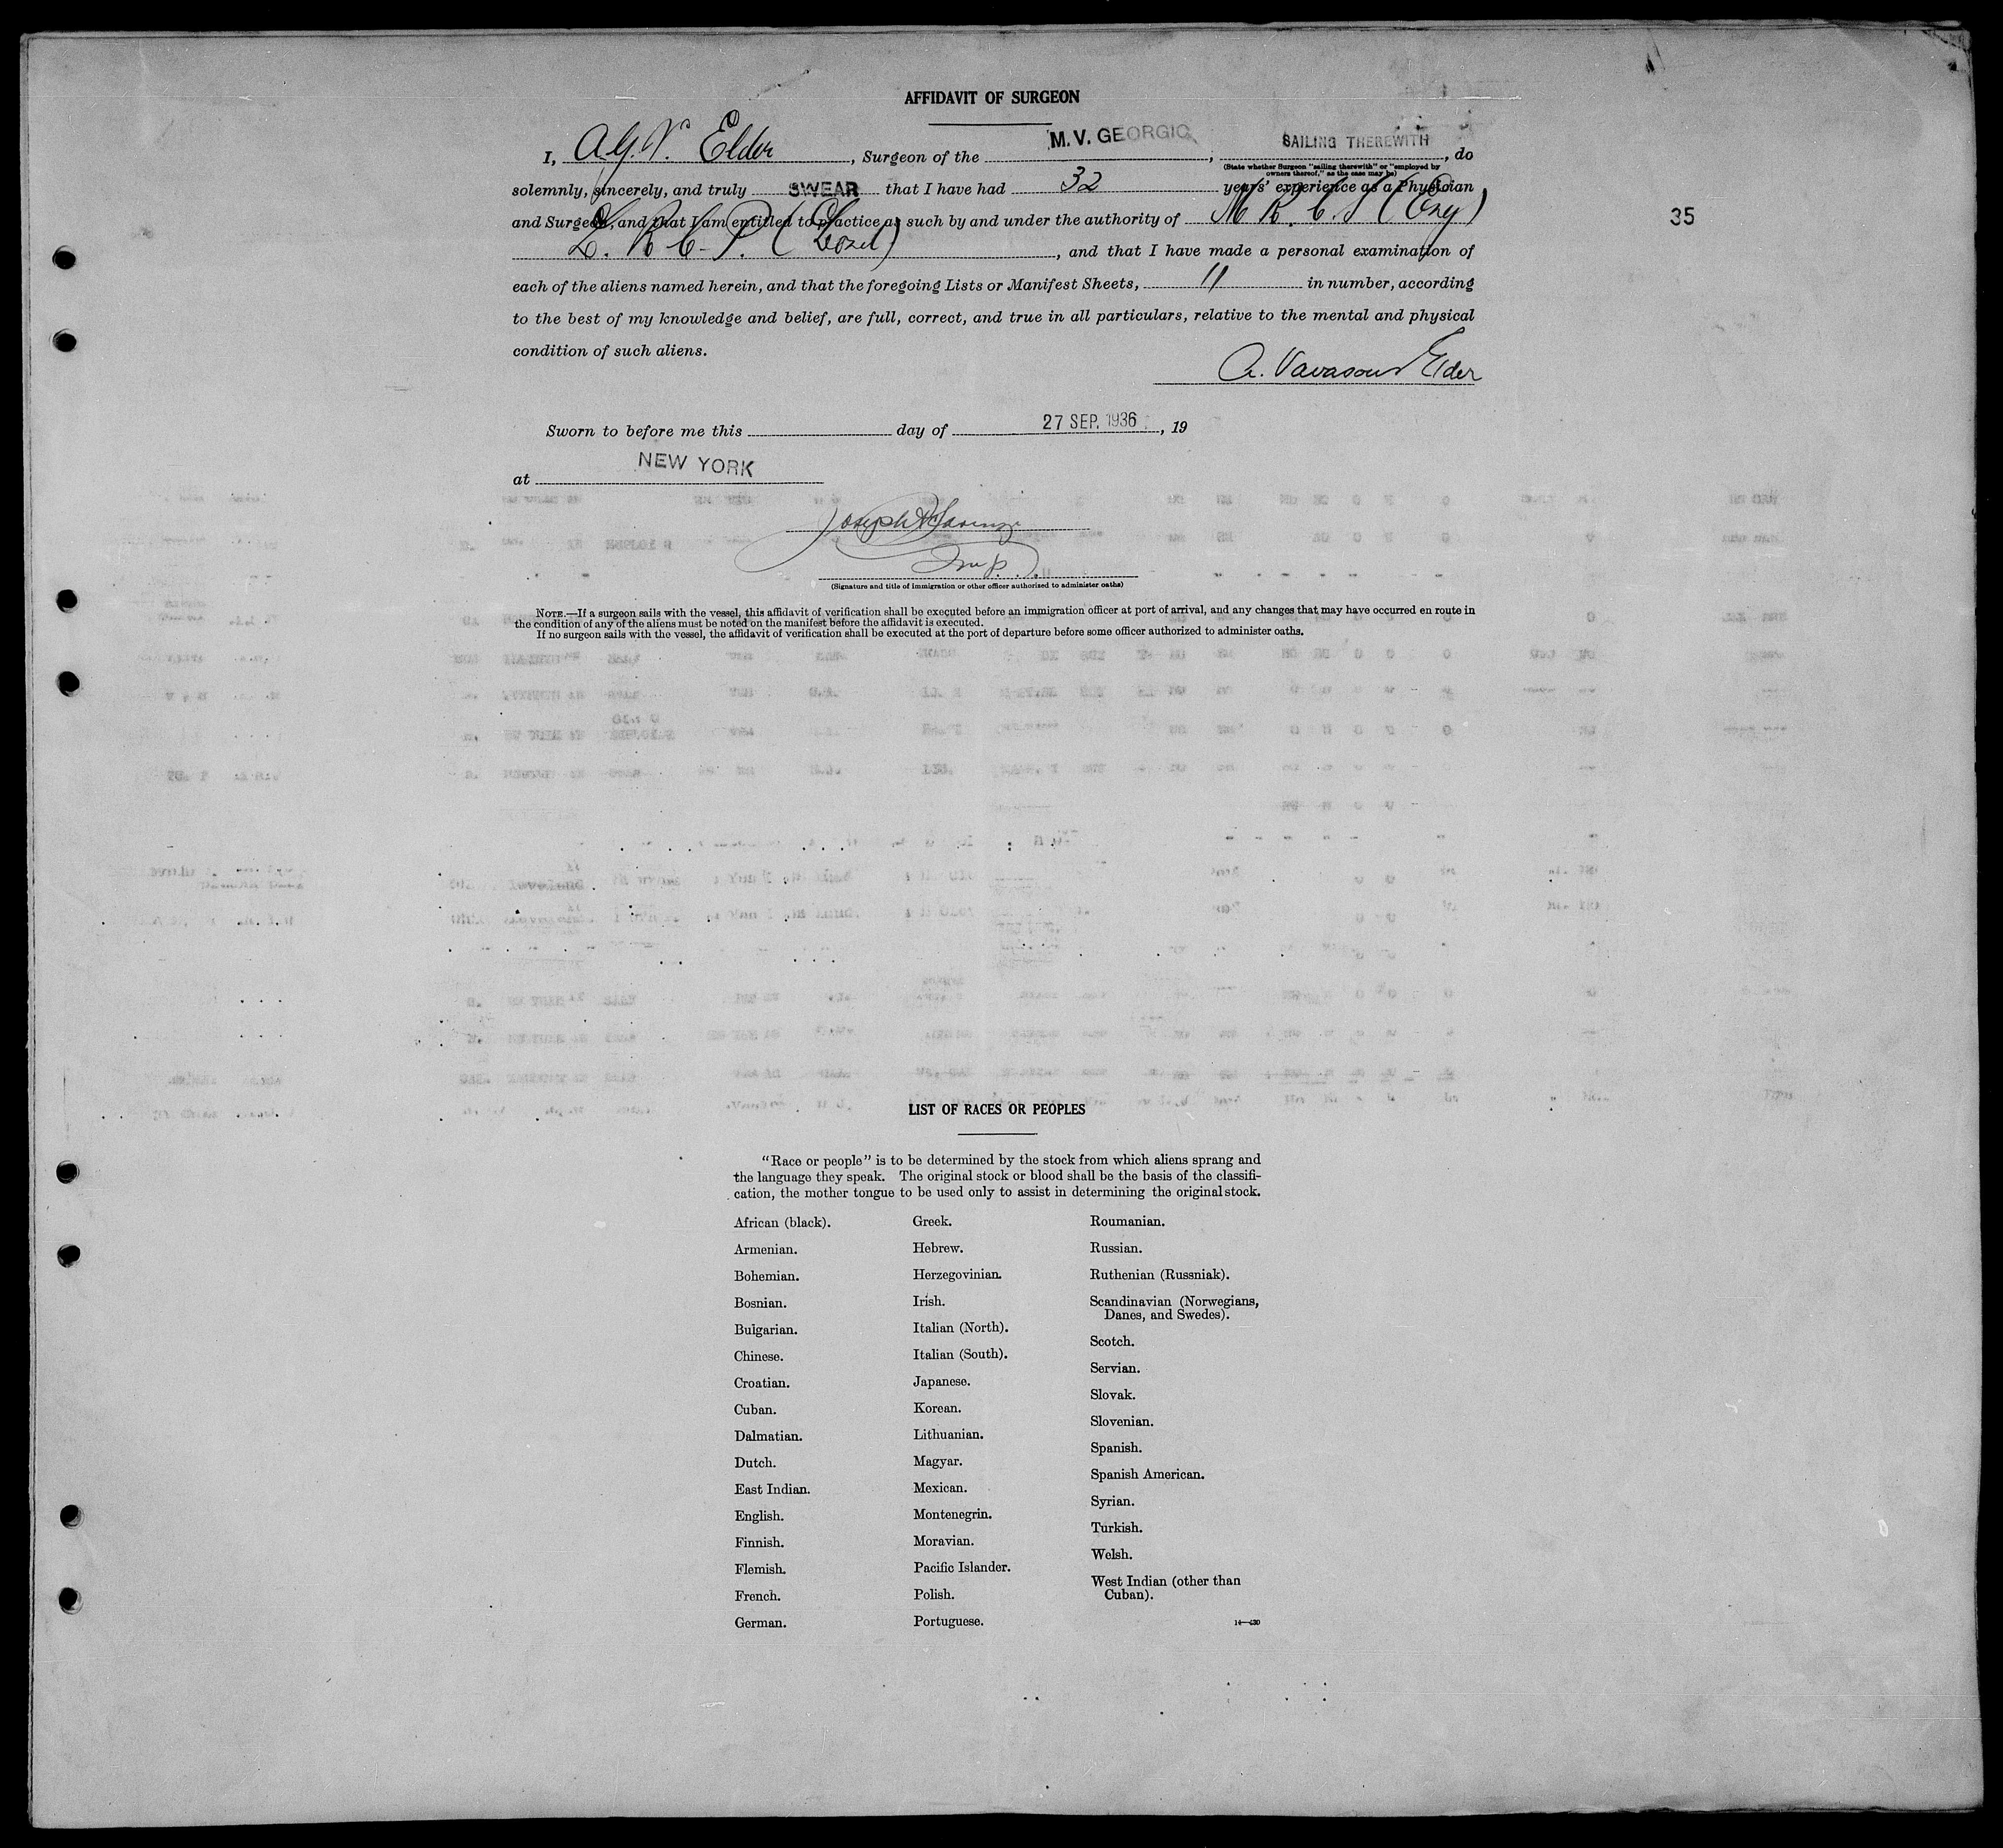 AFFIDAVIT OF SURGEON
I, A.G.V. Elder, Surgeon of the M. V. GEORGIC, SAILING THEREWITH, do
(State whether Surgeon "sailing therewith" or "employed by
owners thereof," as the case may be)
solemnly, sincerely, and truly SWEAR that I have had 32 years' experience as a Physician
and Surgeon, and that I am entitled to practice as such by and under the authority of M R. C. S (Eng)
L. R C. P. (Lond), and that I have made a personal examination of
35
each of the aliens named herein, and that the foregoing Lists or Manifest Sheets, 11 in number, according
to the best of my knowledge and belief, are full, correct, and true in all particulars, relative to the mental and physical
condition of such aliens.
A. Vavasour Elder
Sworn to before me this day of 27 SEP. 1936, 19
at NEW YORK
Joseph
Insp.
(Signature and title of immigration or other officer authorized to administer oaths)
NOTE.—If a surgeon sails with the vessel, this affidavit of verification shall be executed before an immigration officer at port of arrival, and any changes that may have occurred en route in
the condition of any of the aliens must be noted on the manifest before the affidavit is executed.
If no surgeon sails with the vessel, the affidavit of verification shall be executed at the port of departure before some officer authorized to administer oaths.
LIST OF RACES OR PEOPLES
"Race or people" is to be determined by the stock from which aliens sprang and
the language they speak. The original stock or blood shall be the basis of the classifi-
cation, the mother tongue to be used only to assist in determining the original stock.
African (black).
Armenian.
Bohemian.
Bosnian.
Bulgarian.
Chinese.
Croatian.
Cuban.
Dalmatian.
Dutch.
East Indian.
English.
Finnish.
Flemish.
French.
German.
Greek.
Hebrew.
Herzegovinian.
Irish.
Italian (North).
Italian (South).
Japanese.
Korean.
Lithuanian.
Magyar.
Mexican.
Montenegrin.
Moravian.
Pacific Islander.
Polish.
Portuguese.
Roumanian.
Russian.
Ruthenian (Russniak).
Scandinavian (Norwegians,
Danes, and Swedes).
Scotch.
Servian.
Slovak.
Slovenian.
Spanish.
Spanish American.
Syrian.
Turkish.
Welsh.
West Indian (other than
Cuban).
14—430